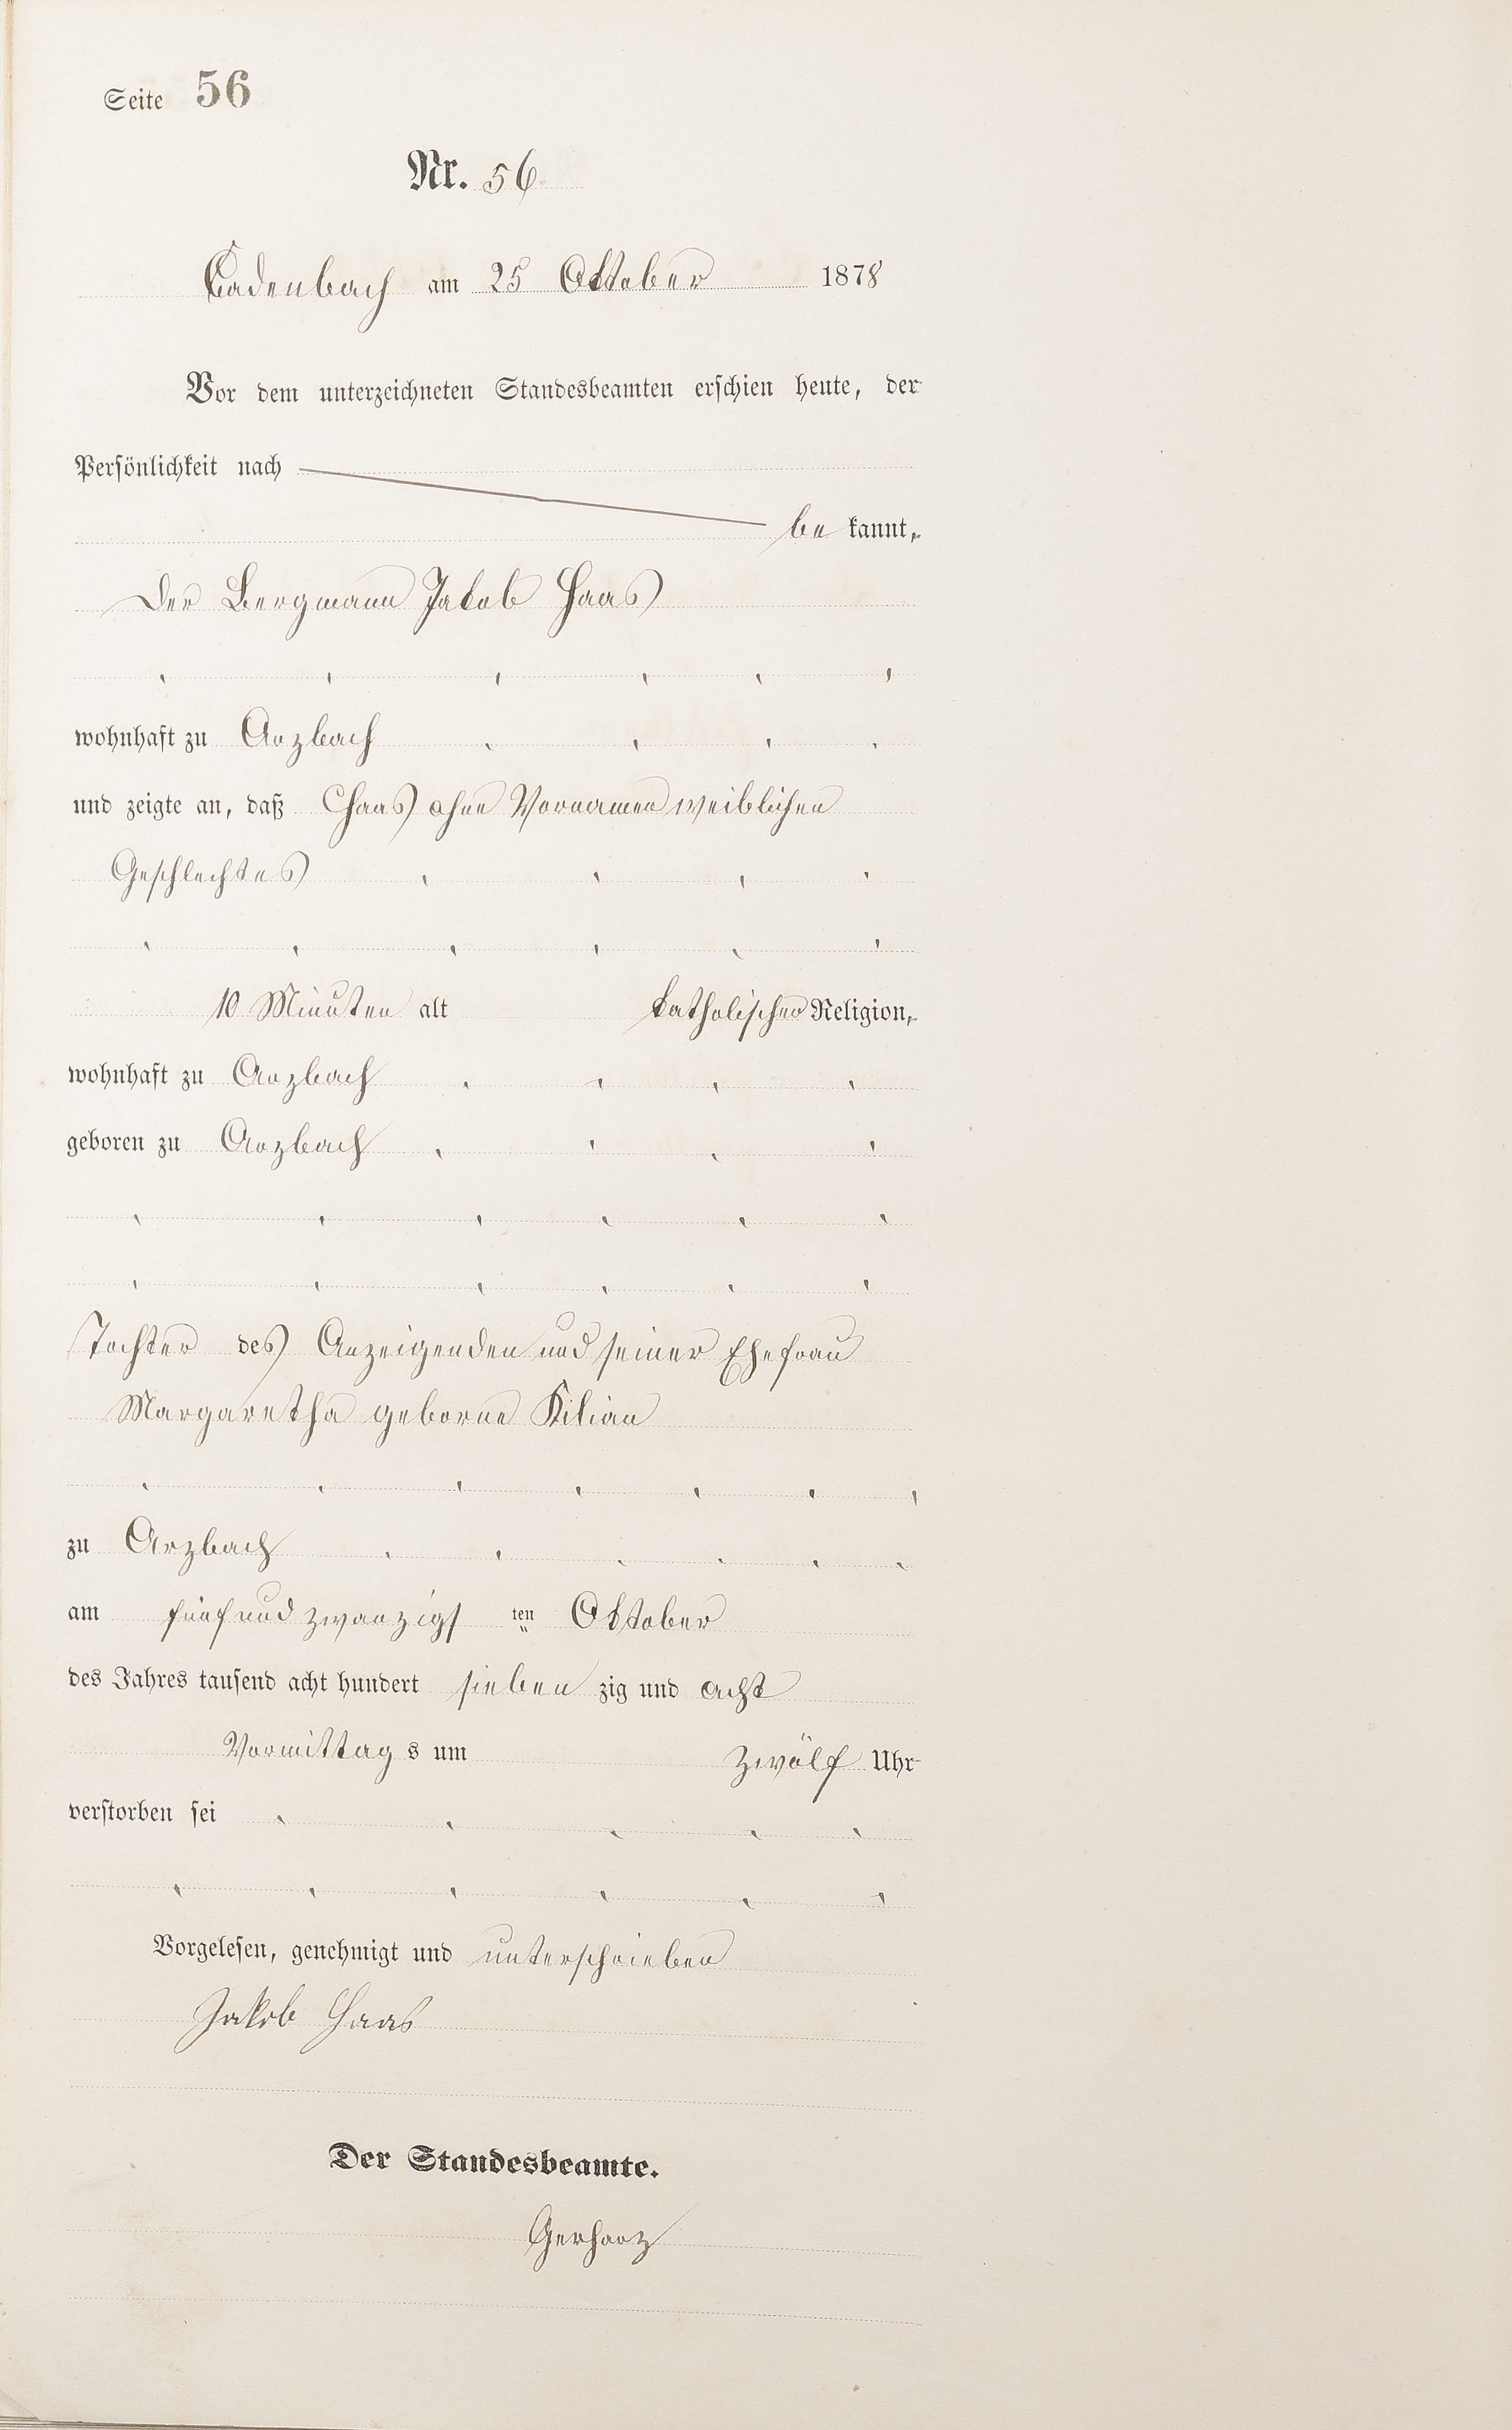 Seite 56
Nr. 56
Cadenbach am 25 Oktober 1878
Vor dem unterzeichneten Standesbeamten erschien heute, der
Persönlichkeit nach
be kannt,
Der Bergmann Jakob Haas
wohnhaft zu Arzbach
und zeigte an, daß Haas ohne Vornamen weiblichen
Geschlechtes
10 Minuten alt katholischer Religion,
wohnhaft zu Arzbach
geboren zu Arzbach
Tochter des Anzeigenden und seiner Ehefrau
Margaretha geborne Kilian
zu Arzbach
am fünf und zwanzigs ten Oktober
des Jahres tausend acht hundert sieben zig und acht
Vormittag s um zwölf Uhr
verstorben sei
Vorgelesen, genehmigt und unterschrieben
Jakob Haas
Der Standesbeamte.
Gerharz